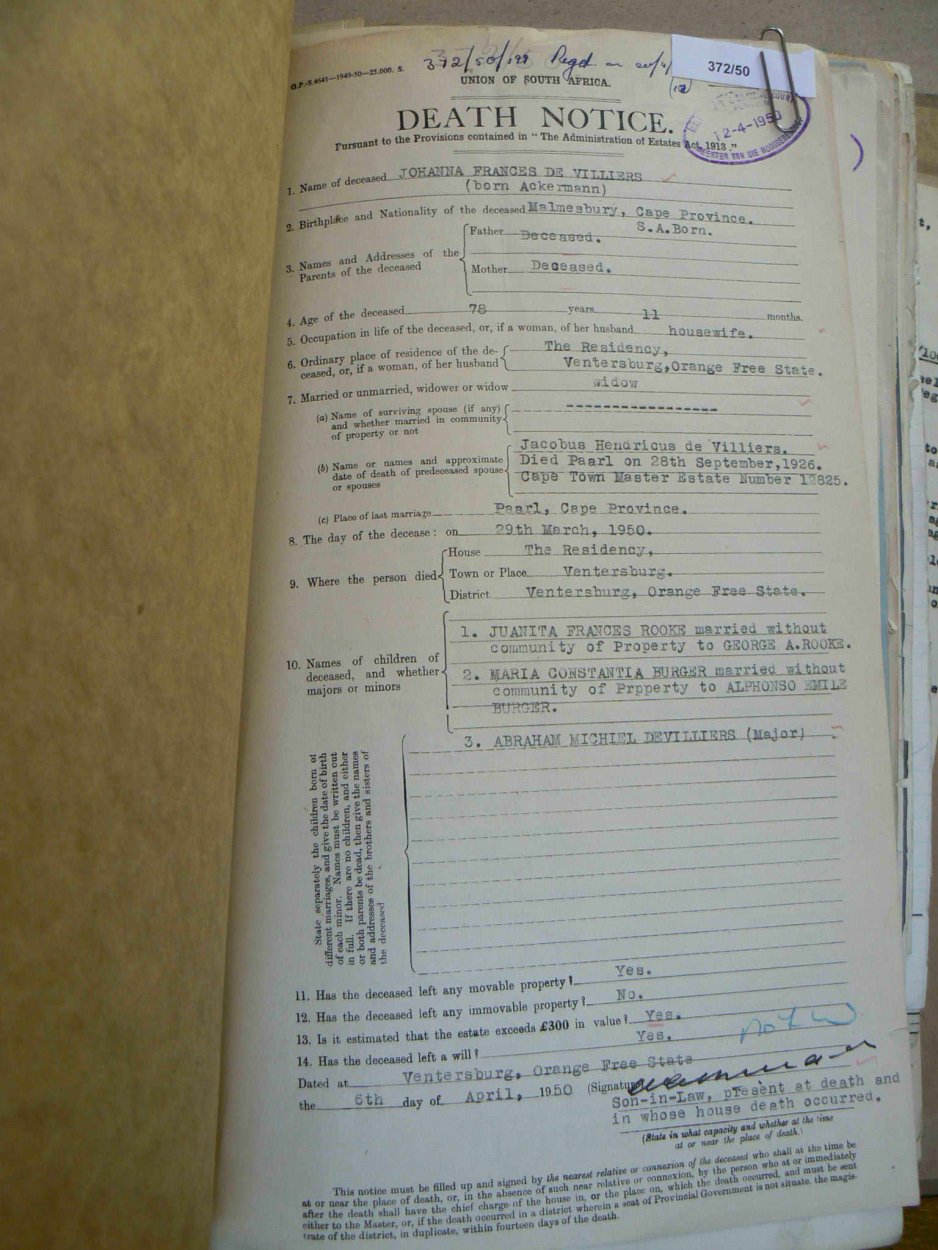 O.P.-S.4641—1949-50—25,000. S.
372/50/
Regd on
372/50
UNION OF SOUTH AFRICA.
12-4-1950
DEATH NOTICE.
Pursuant to the Provisions contained in "The Administration of Estates Act, 1913."
1. Name of deceased JOHANNA FRANCES DE VILLIERS
(born Ackermann)
2. Birthplace and Nationality of the deceased Malmesbury, Cape Province.
S.A.Born.
3. Names and Addresses of the Parents of the deceased
Father Deceased.
Mother Deceased.
4. Age of the deceased 78 years 11 months.
5. Occupation in life of the deceased, or, if a woman, of her husband housewife.
6. Ordinary place of residence of the de-
ceased, or, if a woman, of her husband
The Residency,
Ventersburg,Orange Free State.
7. Married or unmarried, widower or widow widow
(a) Name of surviving spouse (if any)
and whether married in community
of property or not
------------------
(b) Name or names and approximate
date of death of predeceased spouse
or spouses
Jacobus Hendricus de Villiers.
Died Paarl on 28th September,1926.
Cape Town Master Estate Number 12825.
(c) Place of last marriage Paarl, Cape Province.
8. The day of the decease: on 29th March, 1950.
9. Where the person died
House The Residency,
Town or Place Ventersburg.
District Ventersburg, Orange Free State.
10. Names of children of
deceased, and whether
majors or minors
1. JUANITA FRANCES ROOKE married without
community of Property to GEORGE A.ROOKE.
2. MARIA CONSTANTIA BURGER married without
community of Prpperty to ALPHONSO EMILE
BURGER.
3. ABRAHAM MICHIEL DEVILLIERS (Major)
State separately the children born of
different marriages, and give the date of birth
of each minor. Names must be written out
in full. If there are no children, and either
or both parents be dead, then give the names
and addresses of the brothers and sisters of
the deceased
11. Has the deceased left any movable property? Yes.
12. Has the deceased left any immovable property? No.
13. Is it estimated that the estate exceeds £300 in value? Yes.
14. Has the deceased left a will? Yes.
Dated at Ventersburg, Orange Free State
the 6th day of April, 1950 (Signature)
Son-in-Law, present at death and
in whose house death occurred.
(State in what capacity and whether at the time
at or near the place of death.)
This notice must be filled up and signed by the nearest relative or connexion of the deceased who shall at the time be
at or near the place of death, or, in the absence of such near relative or connexion, by the person who at or immediately
after the death shall have the chief charge of the house in, or the place on, which the death occurred, and must be sent
either to the Master, or, if the death occurred in a district wherein a seat of Provincial Government is not situate, the magis-
trate of the district, in duplicate, within fourteen days of the death.